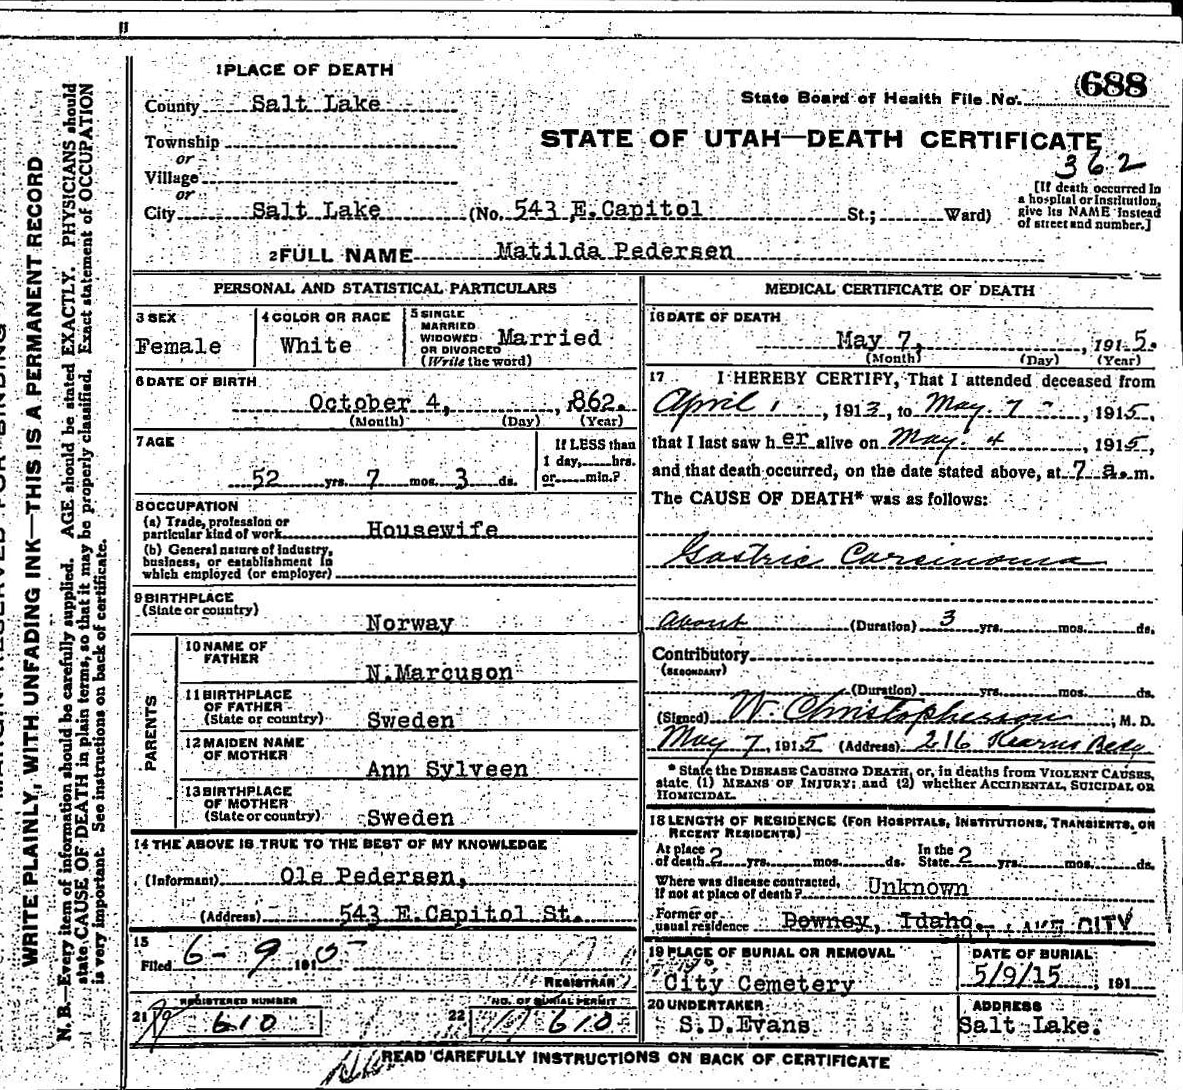 1 PLACE OF DEATH
County Salt Lake
State Board of Health File No. 688
Township
or
Village
or
STATE OF UTAH—DEATH CERTIFICATE
362
City Salt Lake (No. 543 E.Capitol St.; Ward)
[If death occurred in
a hospital or institution,
give its NAME instead
of street and number.]
2 FULL NAME Matilda Pedersen
PERSONAL AND STATISTICAL PARTICULARS
3 SEX
Female
4 COLOR OR RACE
White
5 SINGLE
MARRIED
WIDOWED
OR DIVORCED
(Write the word)
Married
6 DATE OF BIRTH
October 4, , 1862.
(Month) (Day) (Year)
7 AGE
52 yrs. 7 mos. 3 ds.
If LESS than
1 day, hrs.
or min.?
8 OCCUPATION
(a) Trade, profession or
particular kind of work Housewife
(b) General nature of industry,
business, or establishment in
which employed (or employer)
9 BIRTHPLACE
(State or country)
Norway
PARENTS
10 NAME OF
FATHER
N.Marcuson
11 BIRTHPLACE
OF FATHER
(State or country) Sweden
12 MAIDEN NAME
OF MOTHER
Ann Sylveen
13 BIRTHPLACE
OF MOTHER
(State or country) Sweden
14 THE ABOVE IS TRUE TO THE BEST OF MY KNOWLEDGE
(Informant) Ole Pedersen,
(Address) 543 E.Capitol St.
15
Filed 6-9 191
REGISTRAR
21 REGISTERED NUMBER
610
22 NO. OF BURIAL PERMIT
610
MEDICAL CERTIFICATE OF DEATH
16 DATE OF DEATH
May 7, , 1915.
(Month) (Day) (Year)
17 I HEREBY CERTIFY, That I attended deceased from
April 1 , 1913, to May 7 , 1915,
that I last saw her alive on May. 4 , 1915,
and that death occurred, on the date stated above, at 7 a. m.
The CAUSE OF DEATH* was as follows:
Gastric Carcinoma
About (Duration) 3 yrs. mos. ds.
Contributory
(SECONDARY)
(Duration) yrs. mos. ds.
(Signed) W Christopherson, M. D.
May 7, 1915 (Address) 216 Kearns Bedg
* State the DISEASE CAUSING DEATH, or, in deaths from VIOLENT CAUSES,
state (1) MEANS OF INJURY; and (2) whether ACCIDENTAL, SUICIDAL OR
HOMICIDAL.
18 LENGTH OF RESIDENCE (FOR HOSPITALS, INSTITUTIONS, TRANSIENTS, OR
RECENT RESIDENTS)
At place
of death 2 yrs. mos. ds.
In the
State 2 yrs. mos. ds.
Where was disease contracted,
If not at place of death? Unknown
Former or
usual residence Downey, Idaho. LAKE CITY
19 PLACE OF BURIAL OR REMOVAL
City Cemetery
DATE OF BURIAL
5/9/15, 191
20 UNDERTAKER
S.D.Evans
ADDRESS
Salt Lake.
READ CAREFULLY INSTRUCTIONS ON BACK OF CERTIFICATE
WRITE PLAINLY, WITH UNFADING INK—THIS IS A PERMANENT RECORD
N. B.—Every item of information should be carefully supplied. AGE should be stated EXACTLY. PHYSICIANS should
state CAUSE OF DEATH in plain terms, so that it may be properly classified. Exact statement of OCCUPATION
is very important. See instructions on back of certificate.